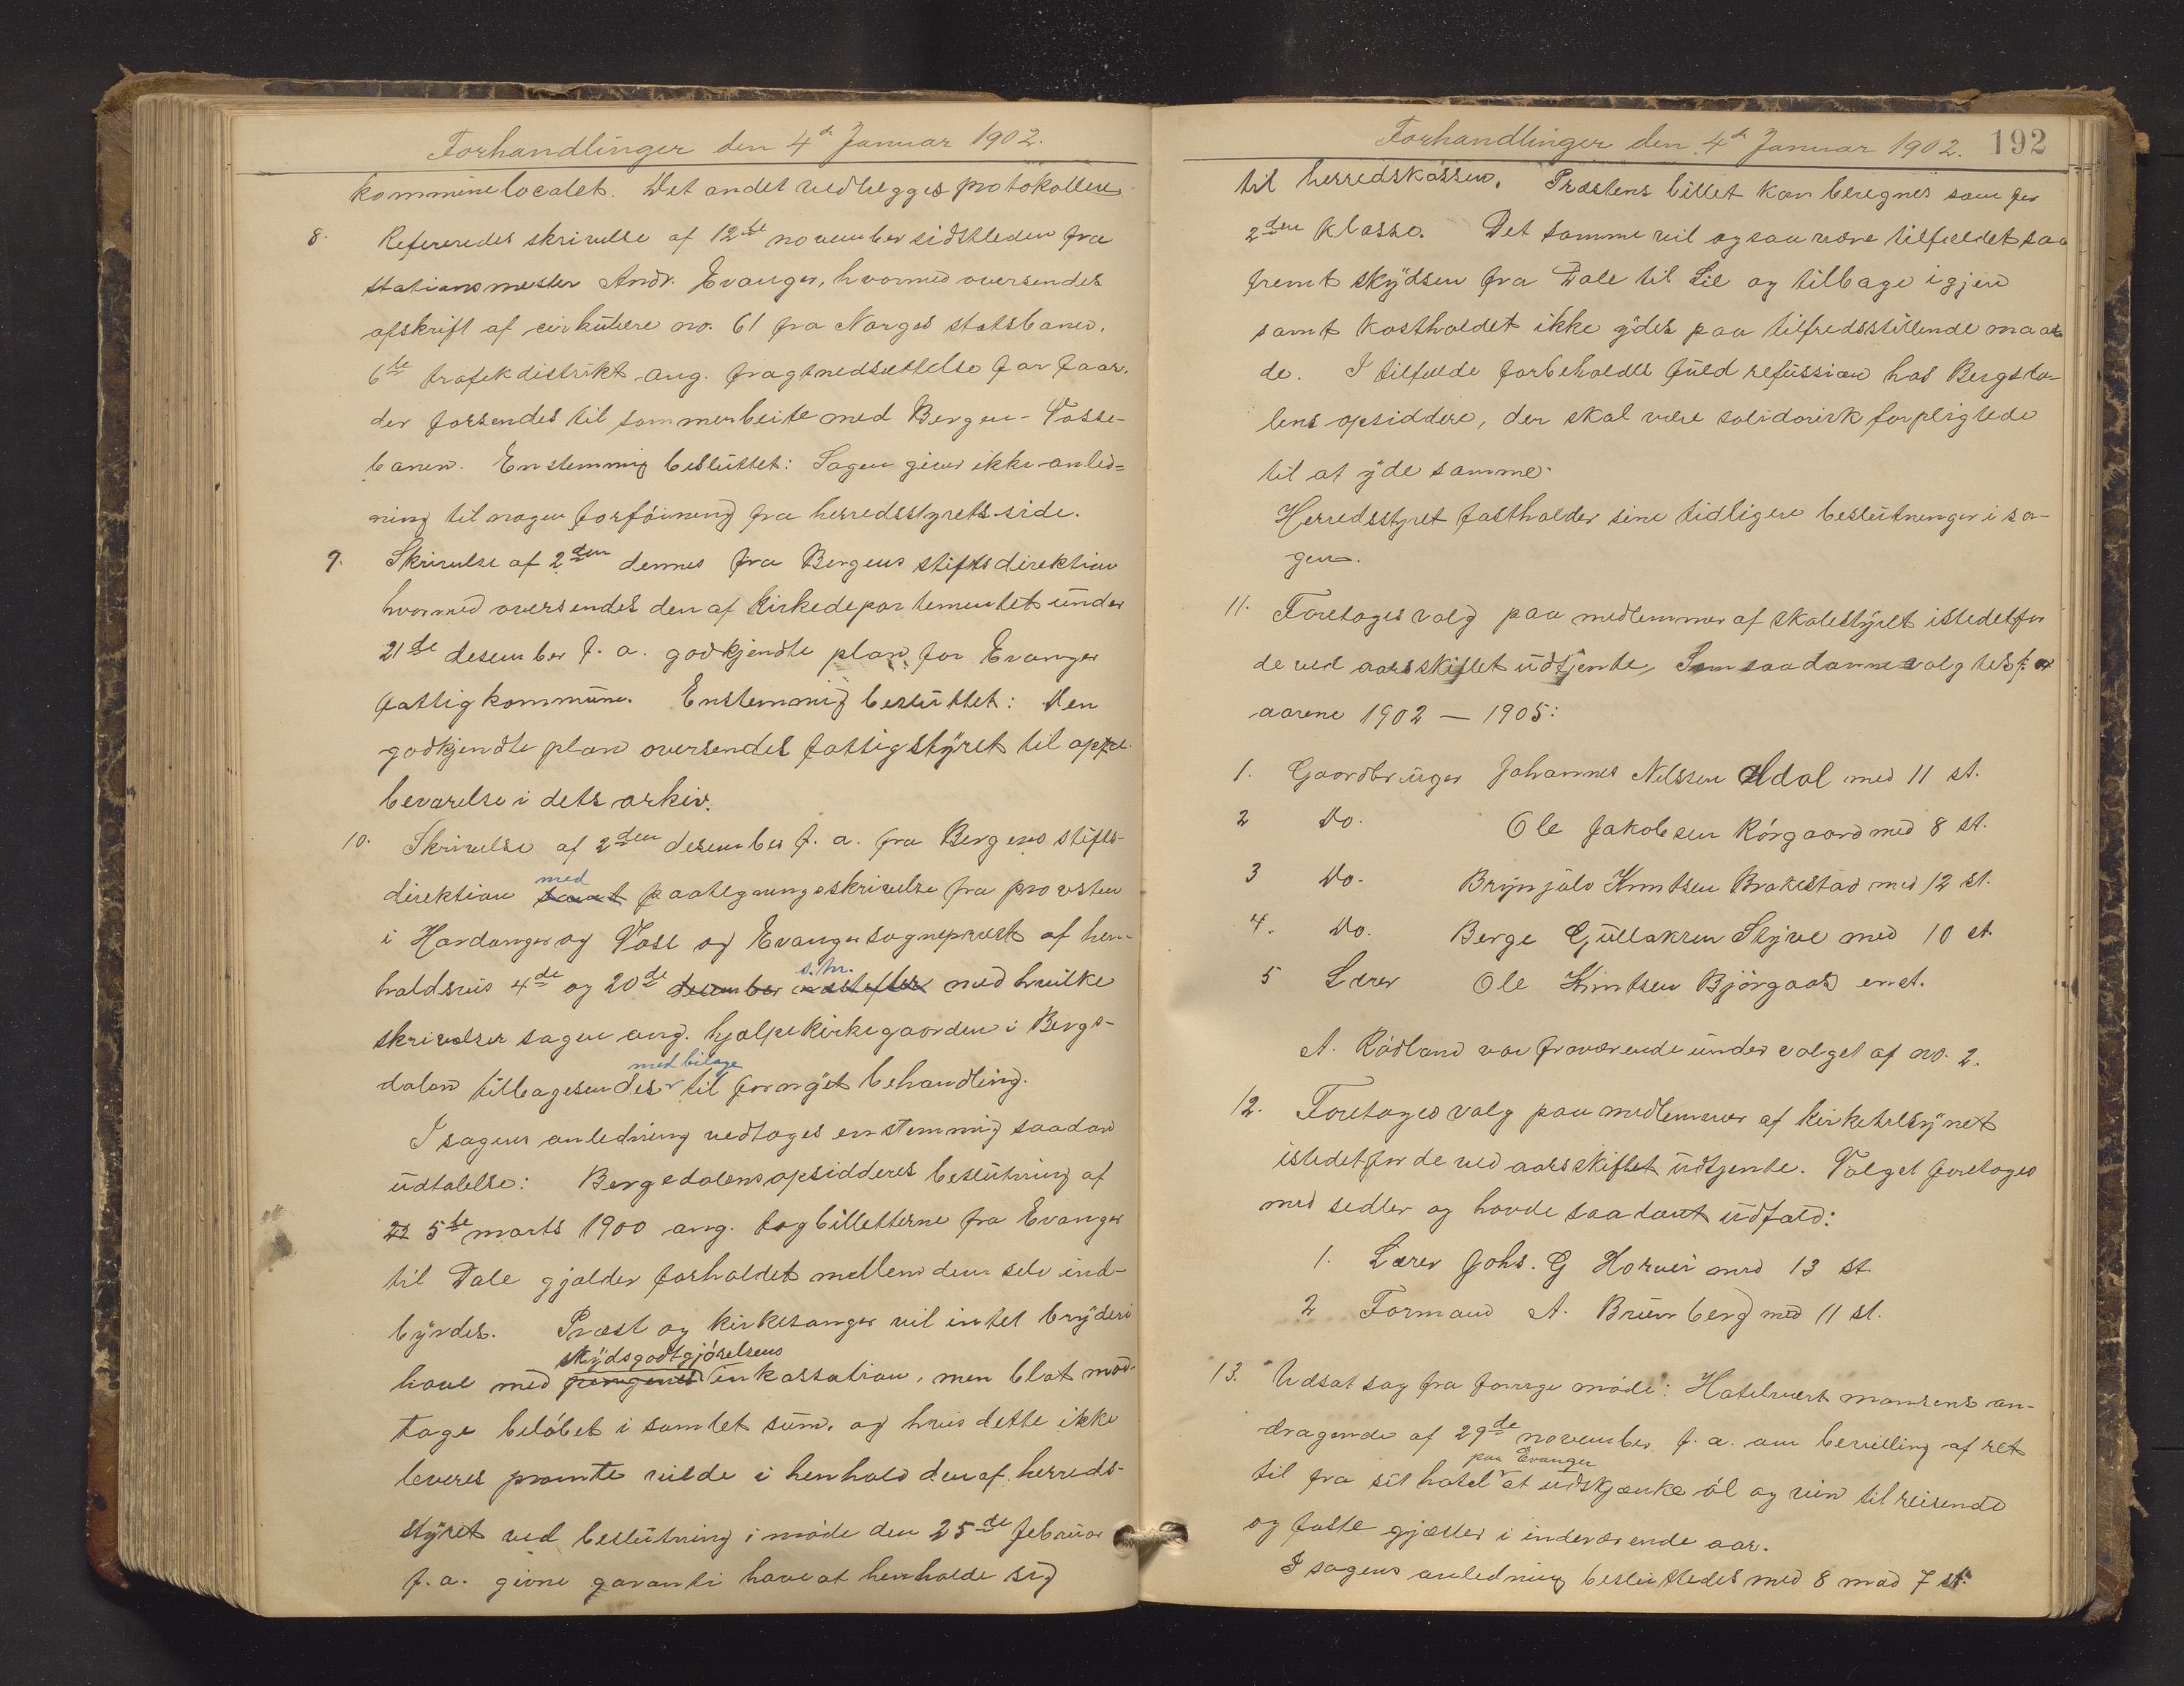 Forhandlinger den 4de Januar 1902.
kommunelocalet. Det andet vedlægges protokollen.
8. Refereredes skrivelse af 12te november sidstleden fra
stationsmester Andr. Evanger, hvormed oversendes
afskrift af cirkulære no. 61 fra Norges statsbaner,
6te trafikdistrikt ang. fragtnedsættelse for faar,
der forsendes til sommerbeite med Bergen-Vosse-
banen. Enstemmig besluttet: Sagen giver ikke anled=
ning til nogen forføining fra herredsstyrets side.
9. Skrivelse af 2den dennes fra Bergens stiftsdirektion
hvormed oversendes den af Kirkedepartementet under
21de desember f. a. godkjendte plan for Evanger
fattigkommune. Enstemmig besluttet: Den
godkjendte plan oversendes fattigstyret til op
bevarelse i dets arkiv.
10. Skrivelse af 2den desember f. a. fra Bergens stifts-
direktion samt med paategningsskrivelse fra provsten
i Hardanger og Voss og Evanger sogneprest af hen-
holdsvis 4de og 20de december s. m. med hvilke
skrivelser sagen ang. hjælpekirkegaarden i Bergs-
dalen tilbagesendes med bilage til fornyet behandling.
I sagens anledning vedtoges enstemmig saadan
udtalelse: Bergsdalens opsidderes beslutning af
5te marts 1900 ang. togbilletterne fra Evanger
til Dale gjælder forholdet mellem dem selv ind-
byrdes. Præst og kirkesanger vil intet bryderi
have med pengenes skydsgodtgjørelsens inkassation, men blot mod-
tage beløbet i samlet sum, og hvis dette ikke
leveres promte vilde i henhold den af herreds-
styret ved beslutning i møde den 25de februar
f. a. givne garanti have at henholde sig
Forhandlinger den 4de Januar 1902. 192
til herredskassen. Præstens billet kan beregnes som for
2den klasse. Det samme vil ogsaa være tilfældet saa
fremt skydsen fra Dale til Lie og tilbage igjen
samt kostholdet ikke ydes paa tilfredsstillende maa
de. I tilfælde forbeholdes fuld refussion hos Bergsda-
lens opsiddere, der skal være solidarisk forpligtede
til at yde samme.
Herredsstyret fastholder sine tidligere beslutninger i sa-
gen.
11. Foretoges valg paa medlemmer af skolestyret istedetfor
de ved aarsskiftet udtjente. Som saadanne valgtes for
aarene 1902 — 1905:
1. Gaardbruger Johannes Nilssen Aldal med 11 st.
2 Do. Ole Jakobsen Rørgaard med 8 st.
3 Do. Brynjulv Knutsen Brakestad med 12 st.
4. Do. Berge Gullaksen Styve med 10 st.
5 Lærer Ole Knutsen Bjørgaas enst.
A. Rødland var fraværende under valget af no. 2.
12. Foretoges valg paa medlemmer af kirketilsynet
istedetfor de ved aarsskiftet udtjente. Valget foretoges
med sedler og havde saadant udfald:
1. Lærer Johs. G Horvei med 13 st
2 Formand A. Brunborg med 11 st.
13. Udsat sag fra forrige møde: Hotelvært Monsens an-
dragende af 29de november f. a. om bevilling af ret
til fra sit hotel paa Evanger at udskjænke øl og vin til reisende
og faste gjæster i indeværende aar.
I sagens anledning besluttedes med 8 mod 7 st: